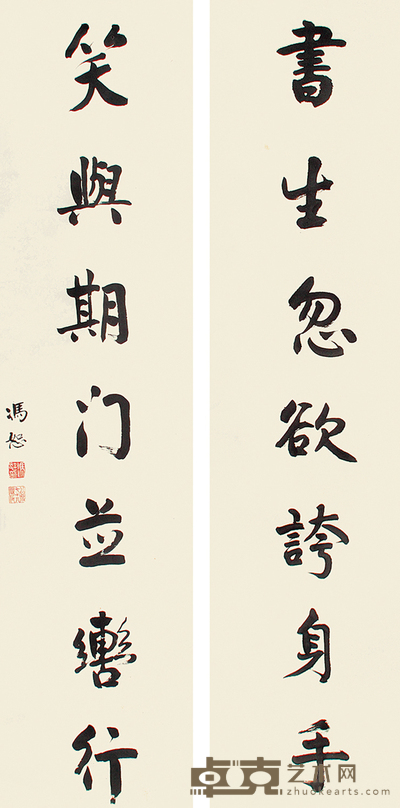 書生忽欲誇身手
笑與期门並轡行
馮恕
卓克艺术网
zhuokearts.com